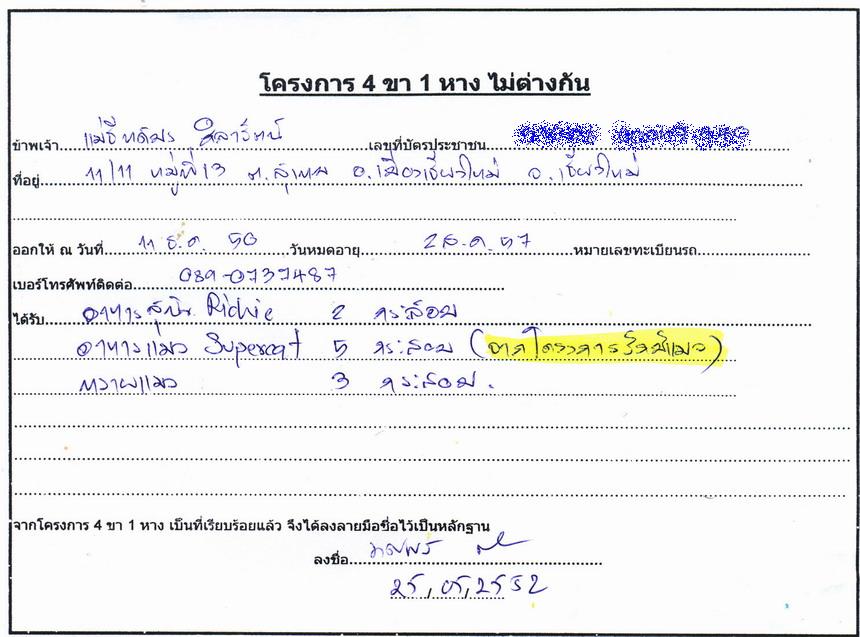 โครงการ 4 ขา 1 หาง ไม่ต่างกัน
ข้าพเจ้า แม่ชี เลขที่บัตรประชาชน
ที่อยู่ 11/11 หมู่ที่ 13 ต.สุเทพ อ.เมืองเชียงใหม่ จ.เชียงใหม่
ออกให้ ณ วันที่ 11 ธ.ค. 50 วันหมดอายุ 2 ส.ค. 57 หมายเลขทะเบียนรถ
เบอร์โทรศัพท์ติดต่อ 089-0737487
ได้รับ อาหารสุนัข Richie 2 กระสอบ
อาหารแมว Supercat 5 กระสอบ (จากโครงการรักษ์แมว)
ทรายแมว 3 กระสอบ.
จากโครงการ 4 ขา 1 หาง เป็นที่เรียบร้อยแล้ว จึงได้ลงลายมือชื่อไว้เป็นหลักฐาน
ลงชื่อ
25, 05, 2552